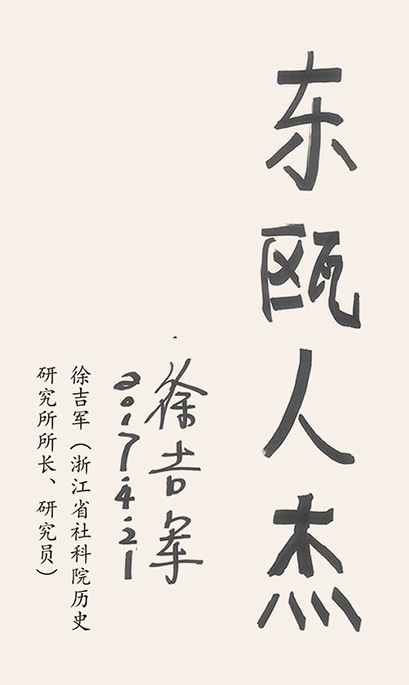 东瓯人杰
徐吉军
2017.4.21
徐吉军（浙江省社科院历史
研究所所长、研究员）